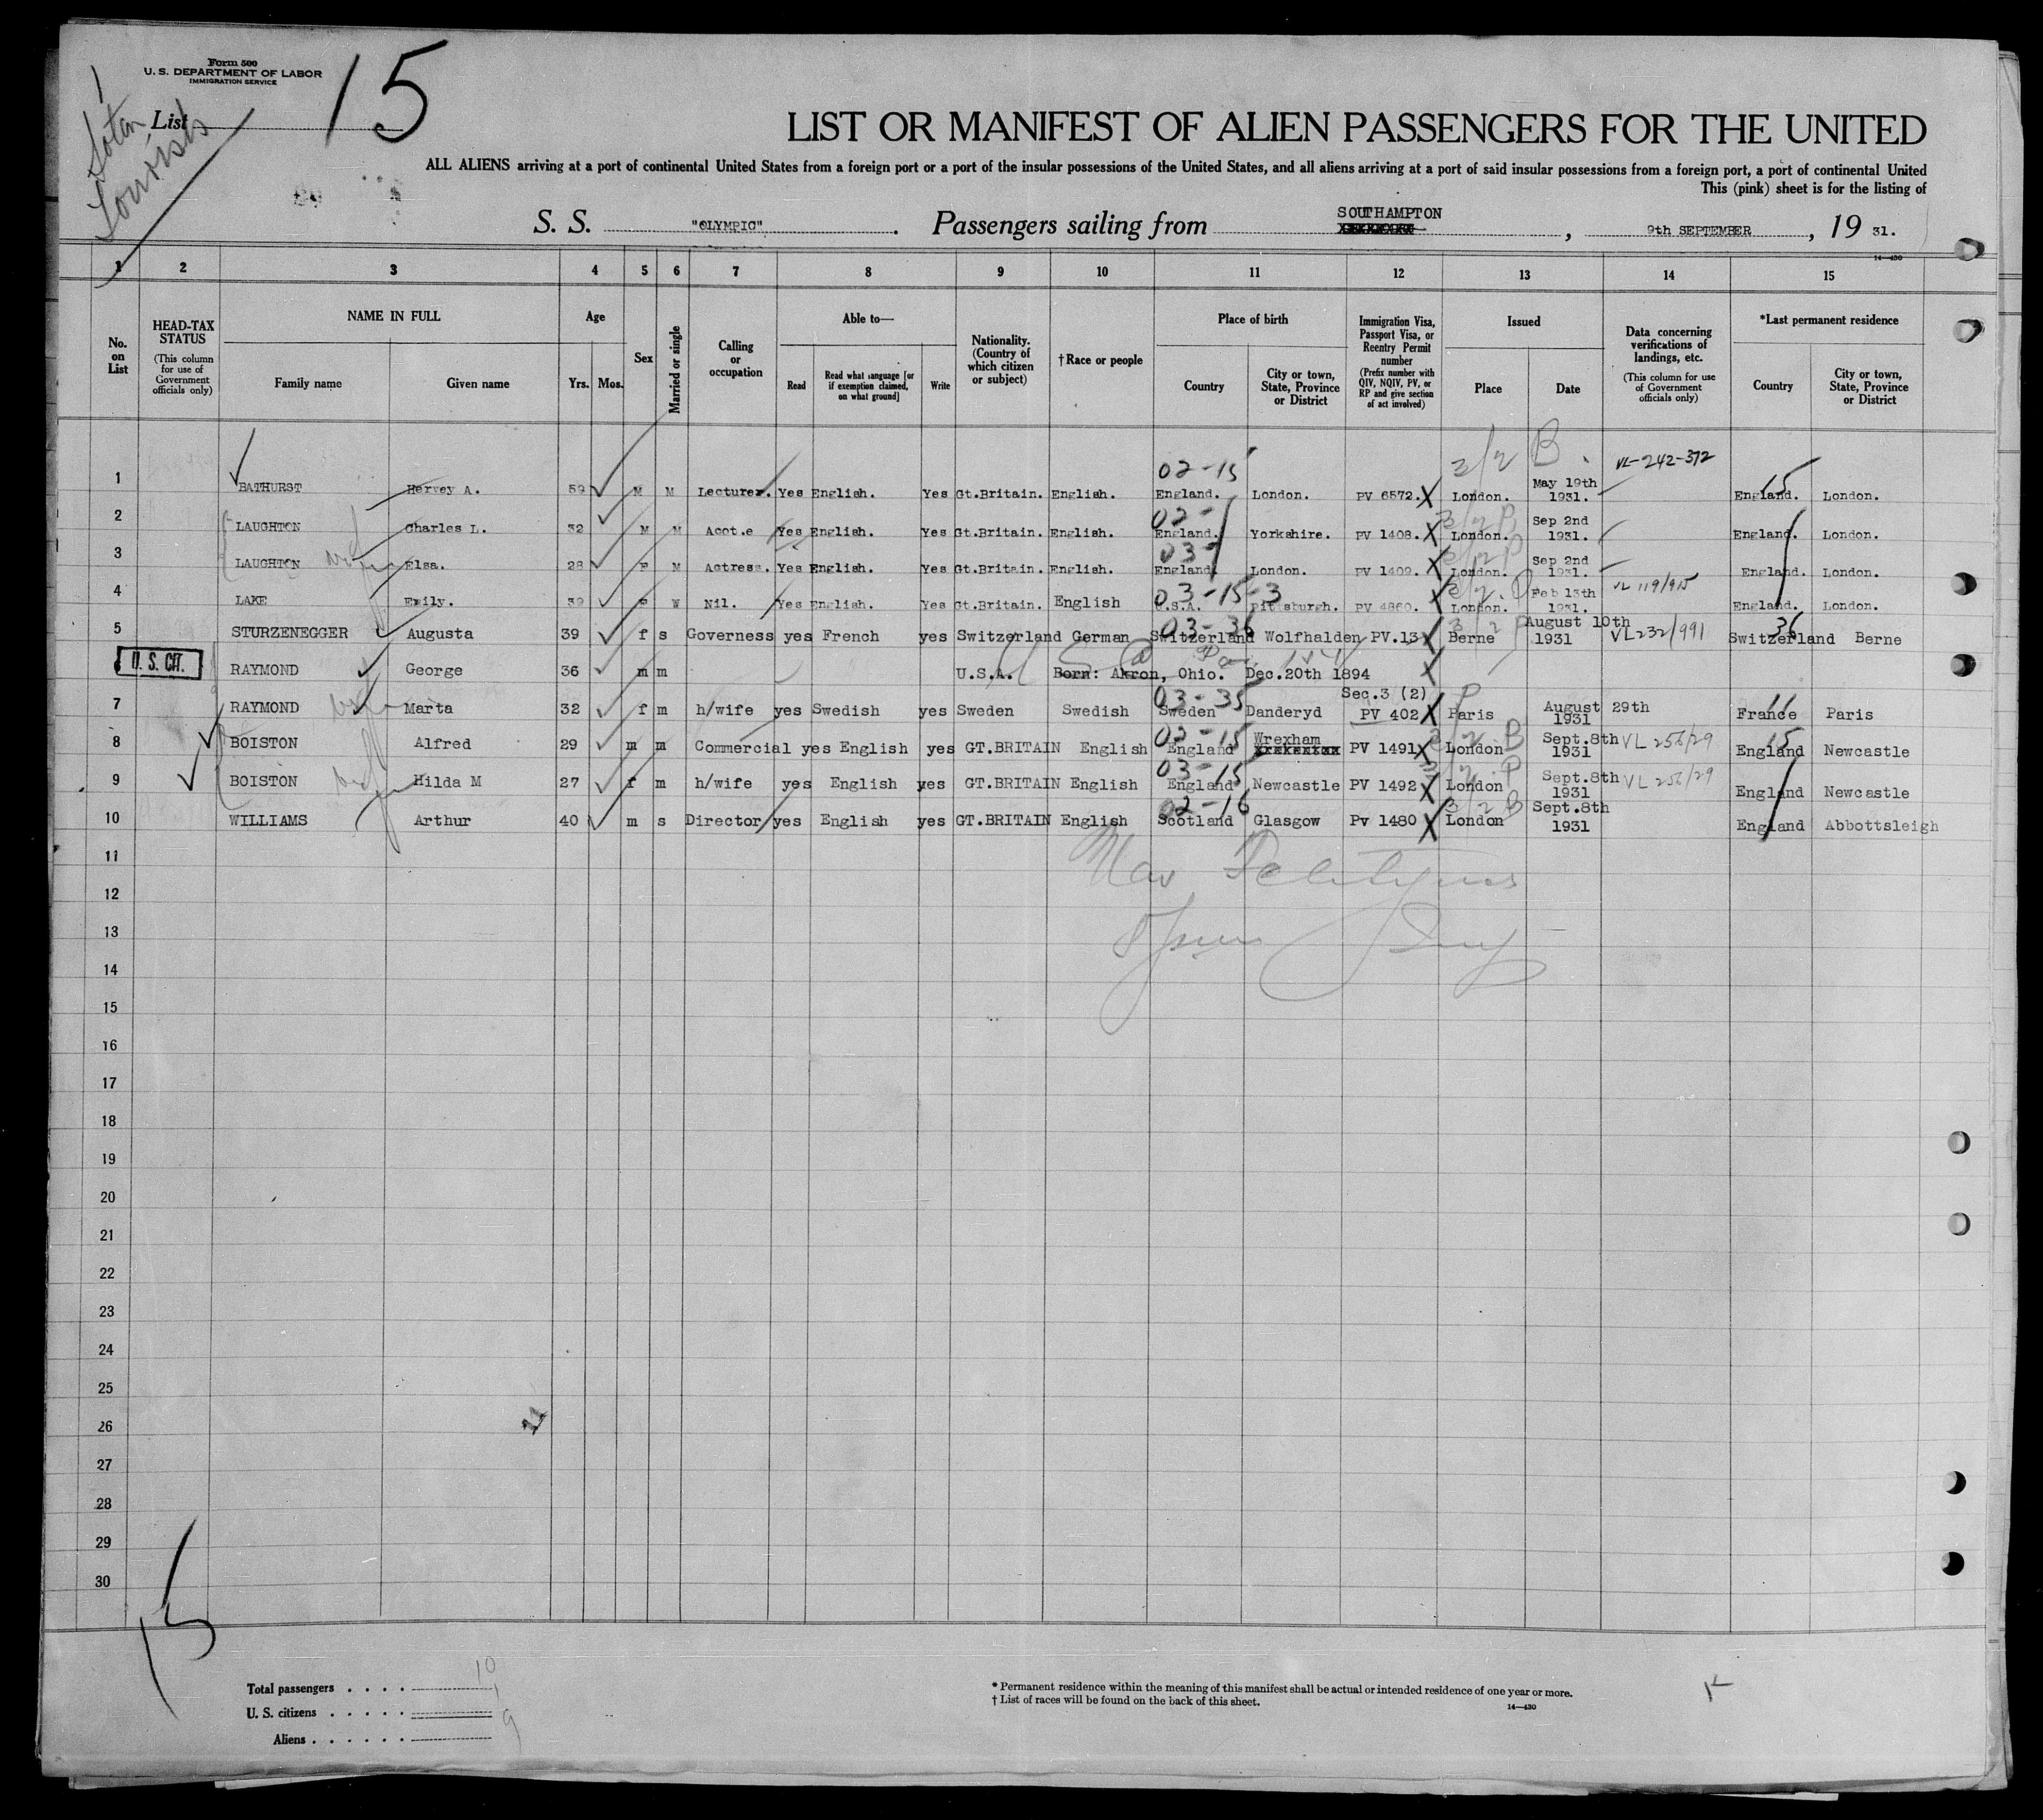 Form 500
U. S. DEPARTMENT OF LABOR
IMMIGRATION SERVICE
List 15
LIST OR MANIFEST OF ALIEN PASSENGERS FOR THE UNITED
ALL ALIENS arriving at a port of continental United States from a foreign port or a port of the insular possessions of the United States, and all aliens arriving at a port of said insular possessions from a foreign port, a port of continental United
This (pink) sheet is for the listing of
S. S. "OLYMPIC". Passengers sailing from SOUTHAMPTON, 9th SEPTEMBER, 19 31.
14—430
1 2 3 4 5 6 7 8 9 10 11 12 13 14 15
No. on List
HEAD-TAX STATUS (This column for use of Government officials only)
NAME IN FULL
Family name Given name
Age
Yrs. Mos.
Sex
Married or single
Calling or occupation
Able to—
Read Read what language [or if exemption claimed, on what ground] Write
Nationality. (Country of which citizen or subject)
†Race or people
Place of birth
Country City or town, State, Province or District
Immigration Visa, Passport Visa, or Reentry Permit number (Prefix number with QIV, NQIV, PV, or RP and give section of act involved)
Issued
Place Date
Data concerning verifications of landings, etc. (This column for use of Government officials only)
*Last permanent residence
Country City or town, State, Province or District
02-15 VL-242-372
1 BATHURST Hervey A. 59 M M Lecturer. Yes English. Yes Gt.Britain. English. England. London. PV 6572. London. May 19th 1931. England. London.
2 LAUGHTON Charles L. 32 M M Acot.e Yes English. Yes Gt.Britain. English. England. Yorkshire. PV 1408. London. Sep 2nd 1931. England. London.
3 LAUGHTON Elsa. 28 F M Actress. Yes English. Yes Gt.Britain. English. England. London. PV 1409. London. Sep 2nd 1931. England. London.
03-15-3 VL 119/915
4 LAKE Emily. 39 F W Nil. Yes English. Yes Gt.Britain. English U.S.A. Pittsburgh. PV 4860. London. Feb 13th 1931. England. London.
03-36
5 STURZENEGGER Augusta 39 f s Governess yes French yes Switzerland German Switzerland Wolfhalden PV.13 Berne August 10th 1931 VL232/991 Switzerland Berne
U. S. CIT. RAYMOND George 36 m m U.S.A. Born: Akron, Ohio. Dec.20th 1894
03-35
7 RAYMOND Marta 32 f m h/wife yes Swedish yes Sweden Swedish Sweden Danderyd Sec.3 (2) PV 402 Paris August 29th 1931 France Paris
02-15
8 BOISTON Alfred 29 m m Commercial yes English yes GT.BRITAIN English England Wrexham PV 1491 London Sept.8th 1931 VL 256/29 England Newcastle
03-15
9 BOISTON Hilda M 27 f m h/wife yes English yes GT.BRITAIN English England Newcastle PV 1492 London Sept.8th 1931 VL 256/29 England Newcastle
02-16
10 WILLIAMS Arthur 40 m s Director yes English yes GT.BRITAIN English Scotland Glasgow Pv 1480 London Sept.8th 1931 England Abbottsleigh
11
12
13
14
15
16
17
18
19
20
21
22
23
24
25
26
27
28
29
30
15
Total passengers . . . . 10
U. S. citizens . . . . . 1
Aliens . . . . . . 9
* Permanent residence within the meaning of this manifest shall be actual or intended residence of one year or more.
† List of races will be found on the back of this sheet.
14—430